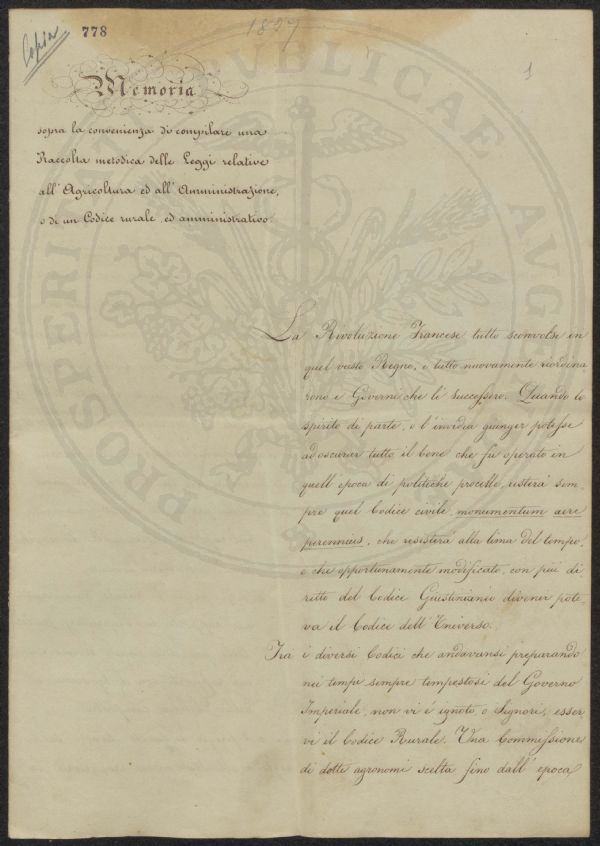 Copia
778
1827
1
Memoria
sopra la convenienza di compilare una
Raccolta metodica delle Leggi relative
all' Agricoltura ed all' Amministrazione,
o di un Codice rurale, ed amministrativo.
La Rivoluzione Francese tutto sconvolse in
quel vasto Regno, e tutto nuovamente riordina
rono i Governi che li successero. Quando lo
spirito di parte, o l'invidia giunger potesse
ad oscurar tutto il bene che fu operato in
quell' epoca di politiche procelle, resterà sem-
pre quel Codice civile, monumentum aere
perennius, che resisterà alla lima del tempo,
e che opportunamente modificato, con più di
ritto del Codice Giustinianeo divenir pote-
va il Codice dell' Universo.
Tra i diversi Codici che andavansi preparando
nei tempi sempre tempestosi del Governo
Imperiale, non vi è ignoto, o Signori, esser
vi il Codice Rurale. Una Commissione
di dotti agronomi scelta fino dall' epoca
PROSPERITATI PUBLICAE AUG